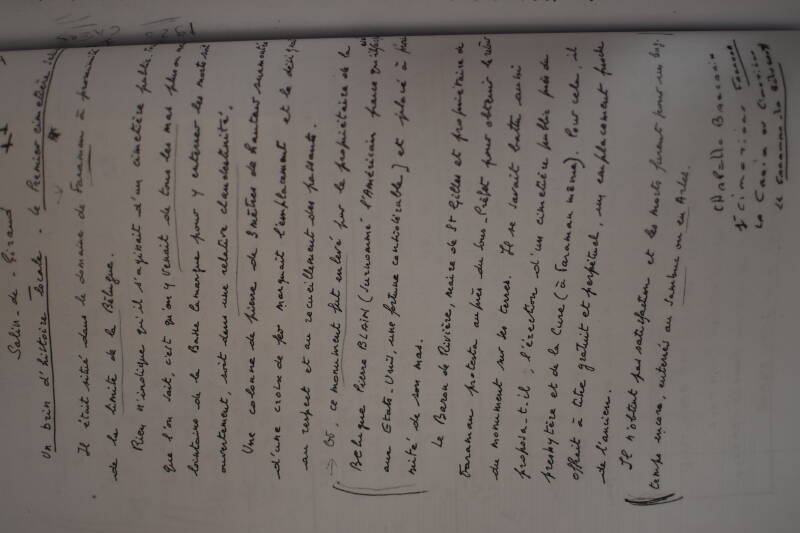 Salin-de-Giraud
Un brin d'histoire locale. le Premier cimetière
Il était situé dans le domaine de Faraman à proximité
de la limite de la Bélugue.
Rien n'indique qu'il s'agissait d'un cimetière public
que l'on sait, c'est qu'on y venait de tous les mas plus ou
lointains de la Basse Camargue pour y enterrer les morts soit
ouvertement, soit dans une relative clandestinité.
Une colonne de pierre de 3 mètres de hauteur surmontée
d'une croix de fer marquait l'emplacement et le désignait
au respect et au recueillement des passants.
Or, ce monument fut enlevé par le propriétaire de la
Bélugue Pierre BLAIN (surnommé l'Américain parce qu'il
aux Etats-Unis, une fortune considérable) et placé à proxi
mité de son mas.
Le Baron de Rivière, maire de St Gilles et propriétaire de
Faraman protesta auprès du Sous-Préfet pour obtenir le retour
du monument sur ses terres. Il se serait battu aussi
proposa-t-il, l'érection d'un cimetière public près du
presbytère et de la Cure (à Faraman même). Pour cela, il
offrait à titre gratuit et perpétuel, un emplacement proche
de l'ancien.
Il n'obtint pas satisfaction et les morts furent pour un long
temps encore, enterrés au Sambuc ou en Arles.